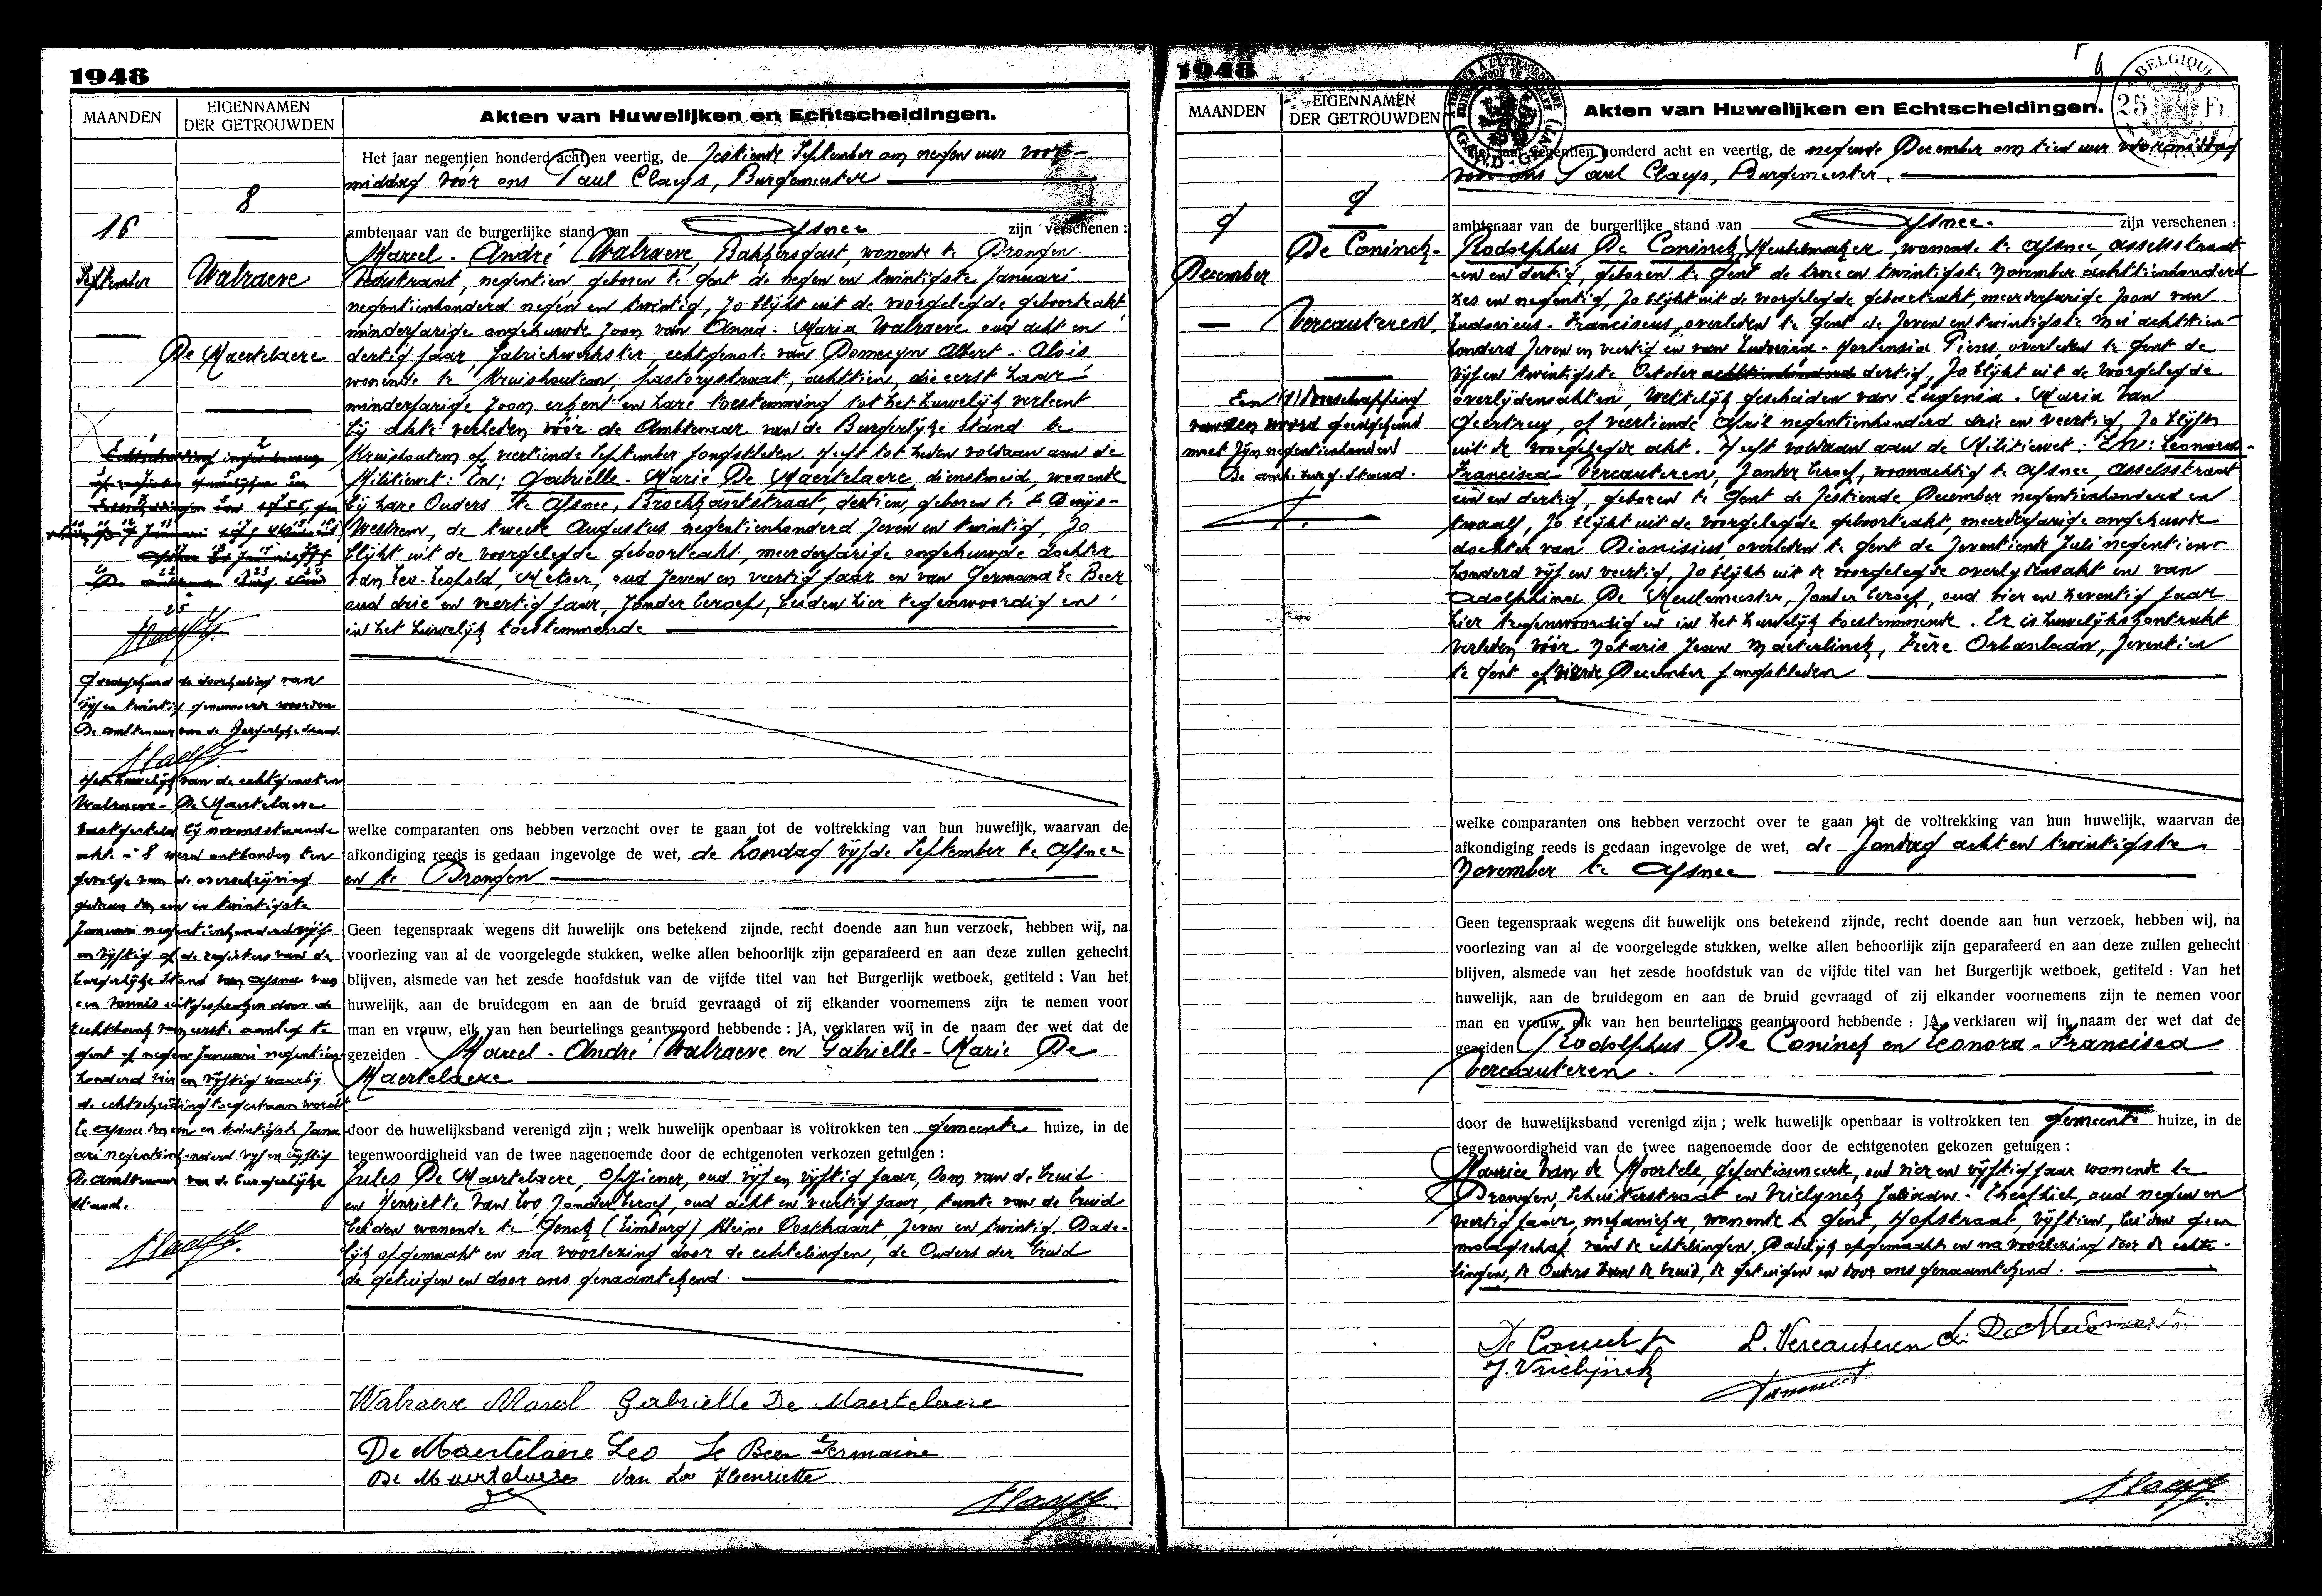 1948
MAANDEN
EIGENNAMEN
DER GETROUWDEN
Akten van Huwelijken en Echtscheidingen.
8
16
September
Walraeve
De Maertelaere
Het jaar negentien honderd acht en veertig, de zestiende September om negen uur voor-
middag vóór ons Paul Claeys, Burgemeester
ambtenaar van de burgerlijke stand van Afsnee zijn verschenen :
Marcel - André Walraeve, Bakkersgast, wonende te Drongen
negentien geboren te Gent de negen en twintigste Januari
negentienhonderd negen en twintig, zo blijkt uit de voorgelegde geboorteakt,
minderjarige ongehuwde zoon van Anna - Maria Walraeve oud acht en
dertig jaar, fabriekwerkster, echtgenote van Domecyn Albert - Alois
wonende te Kruishoutem, pastorijstraat, achttien, die eerst haar
minderjarige zoon erkent en hare toestemming tot het huwelijk verleent
bij akte verleden vóór de Ambtenaar van de Burgerlijke stand te
Kruishoutem op veertiende September jongstleden. Heeft tot heden voldaan aan de
Militiewet : En : Gabriëlle - Marie De Maertelaere, dienstmeid, wonende
bij hare Ouders te Afsnee, Broekkantstraat, dertien, geboren te St Denijs-
Westrem, de tweede Augustus negentienhonderd zeven en twintig, zo
blijkt uit de voorgelegde geboorteakt, meerderjarige ongehuwde dochter
van Leo-Leopold, Metser, oud zeven en veertig jaar en van Germana Le Beer
oud drie en veertig jaar, zonder beroep, beiden hier tegenwoordig en
in het huwelijk toestemmende
Goedgekeurd de doorhaling van
vijf en twintig genummerde woorden
De ambtenaar van de Burgerlijke Stand.
Het huwelijk van de echtgenoten
Walraeve - De Maertelaere
vastgesteld bij nevenstaande
akte n° 8 werd ontbonden ten
gevolge van de overschrijving
gedaan den een en twintigste
Januari negentienhonderd vijf
en vijftig op de registers van de
burgerlijke Stand van Afsnee van
een vonnis uitgesproken door de
rechtbank van eerste aanleg te
Gent op negen Januari negentien
honderd vier en vijftig waarbij
de echtscheiding toegestaan wordt
te Afsnee den een en twintigste Janu-
ari negentienhonderd vijf en vijftig
De ambtenaar van de burgerlijke
stand.
welke comparanten ons hebben verzocht over te gaan tot de voltrekking van hun huwelijk, waarvan de
afkondiging reeds is gedaan ingevolge de wet, de Zondag vijfde September te Afsnee
en te Drongen
Geen tegenspraak wegens dit huwelijk ons betekend zijnde, recht doende aan hun verzoek, hebben wij, na
voorlezing van al de voorgelegde stukken, welke allen behoorlijk zijn geparafeerd en aan deze zullen gehecht
blijven, alsmede van het zesde hoofdstuk van de vijfde titel van het Burgerlijk wetboek, getiteld : Van het
huwelijk, aan de bruidegom en aan de bruid gevraagd of zij elkander voornemens zijn te nemen voor
man en vrouw, elk van hen beurtelings geantwoord hebbende : JA, verklaren wij in de naam der wet dat de
gezeiden Marcel - André Walraeve en Gabrielle - Marie De
Maertelaere
door de huwelijksband verenigd zijn ; welk huwelijk openbaar is voltrokken ten gemeente huize, in de
tegenwoordigheid van de twee nagenoemde door de echtgenoten verkozen getuigen :
Jules De Maertelaere, Opziener, oud vijf en vijftig jaar, Oom van de bruid
en Henriette Van Loo, zonder beroep, oud acht en veertig jaar, tante van de bruid
beiden wonende te Genck (Limburg) Kleine Oosthaart, zeven en twintig. Dade-
lijk opgemaakt en na voorlezing door de echtelingen, de Ouders der bruid
de getuigen en door ons genaamtekend.
Walraeve Marcel Gabrielle De Maertelaere
De Maertelaere Leo Le Beer Germaine
De Maertelaere Van Loo Henriette
1948
9
BELGIQUE
25 Fr
MAANDEN
EIGENNAMEN
DER GETROUWDEN
Akten van Huwelijken en Echtscheidingen.
9
9
December
De Coninck-
Vercauteren.
Een (1) verschrapping
van een woord goedgekeurd
moet zijn negentienhonderd
De amb. burg. Stand.
Het jaar negentien honderd acht en veertig, de negende December om tien uur voormiddag
vóór ons Paul Claeys, Burgemeester.
ambtenaar van de burgerlijke stand van Afsnee. zijn verschenen :
Rodolphus De Coninck, Meubelmaker, wonende te Afsnee, Asselsstraat
een en dertig, geboren te Gent de twee en twintigste November achttienhonderd
zes en negentig, zo blijkt uit de voorgelegde geboorteakt, meerderjarige zoon van
Ludovicus - Franciscus, overleden te Gent de zeven en twintigste Mei achttien-
honderd zeven en veertig en van Ludovica - Hortensia Piens, overleden te Gent de
vijf en twintigste October achttienhonderd dertig, zo blijkt uit de voorgelegde
overlijdensakten, wettelijk gescheiden van Eugenia - Maria Van
Geertruy, op veertiende April negentienhonderd drie en veertig, zo blijkt
uit de voorgelegde akt. Heeft voldaan aan de Militiewet : En : Leonora -
Francisca Vercauteren, zonder beroep, woonachtig te Afsnee, Asselsstraat
een en dertig, geboren te Gent de zestiende December negentienhonderd en
twaalf, zo blijkt uit de voorgelegde geboorteakt, meerderjarige ongehuwde
dochter van Dionisius, overleden te Gent de zeventiende Juli negentien-
honderd vijf en veertig, zo blijkt uit de voorgelegde overlijdensakt en van
Adolphina De Meulemeester, zonder beroep, oud vier en zeventig jaar
hier tegenwoordig en in het huwelijk toestemmende. Er is huwelijkskontrakt
verleden vóór Notaris Jean Maeterlinck, Frère Orbanlaan, zeventien
te Gent op vierde December jongstleden
welke comparanten ons hebben verzocht over te gaan tot de voltrekking van hun huwelijk, waarvan de
afkondiging reeds is gedaan ingevolge de wet, de Zondag acht en twintigste
November te Afsnee
Geen tegenspraak wegens dit huwelijk ons betekend zijnde, recht doende aan hun verzoek, hebben wij, na
voorlezing van al de voorgelegde stukken, welke allen behoorlijk zijn geparafeerd en aan deze zullen gehecht
blijven, alsmede van het zesde hoofdstuk van de vijfde titel van het Burgerlijk wetboek, getiteld : Van het
huwelijk, aan de bruidegom en aan de bruid gevraagd of zij elkander voornemens zijn te nemen voor
man en vrouw, elk van hen beurtelings geantwoord hebbende : JA, verklaren wij in naam der wet dat de
gezeiden Rodolphus De Coninck en Leonora - Francisca
Vercauteren.
door de huwelijksband verenigd zijn ; welk huwelijk openbaar is voltrokken ten gemeente huize, in de
tegenwoordigheid van de twee nagenoemde door de echtgenoten gekozen getuigen :
Maurice Van de Moortele, gepensionneerde, oud vier en vijftig jaar wonende te
Drongen, Schuiterstraat en Vrielynck Juliaan - Theophiel, oud negen en
veertig jaar, mekanieker, wonende te Gent, Hofstraat, vijftien, beiden geen
maagschap van de echtelingen. Dadelijk opgemaakt en na voorlezing door de echte-
lingen, de Ouders van de bruid, de getuigen en door ons genaamtekend.
De Coninck L. Vercauteren
J. Vrielynck